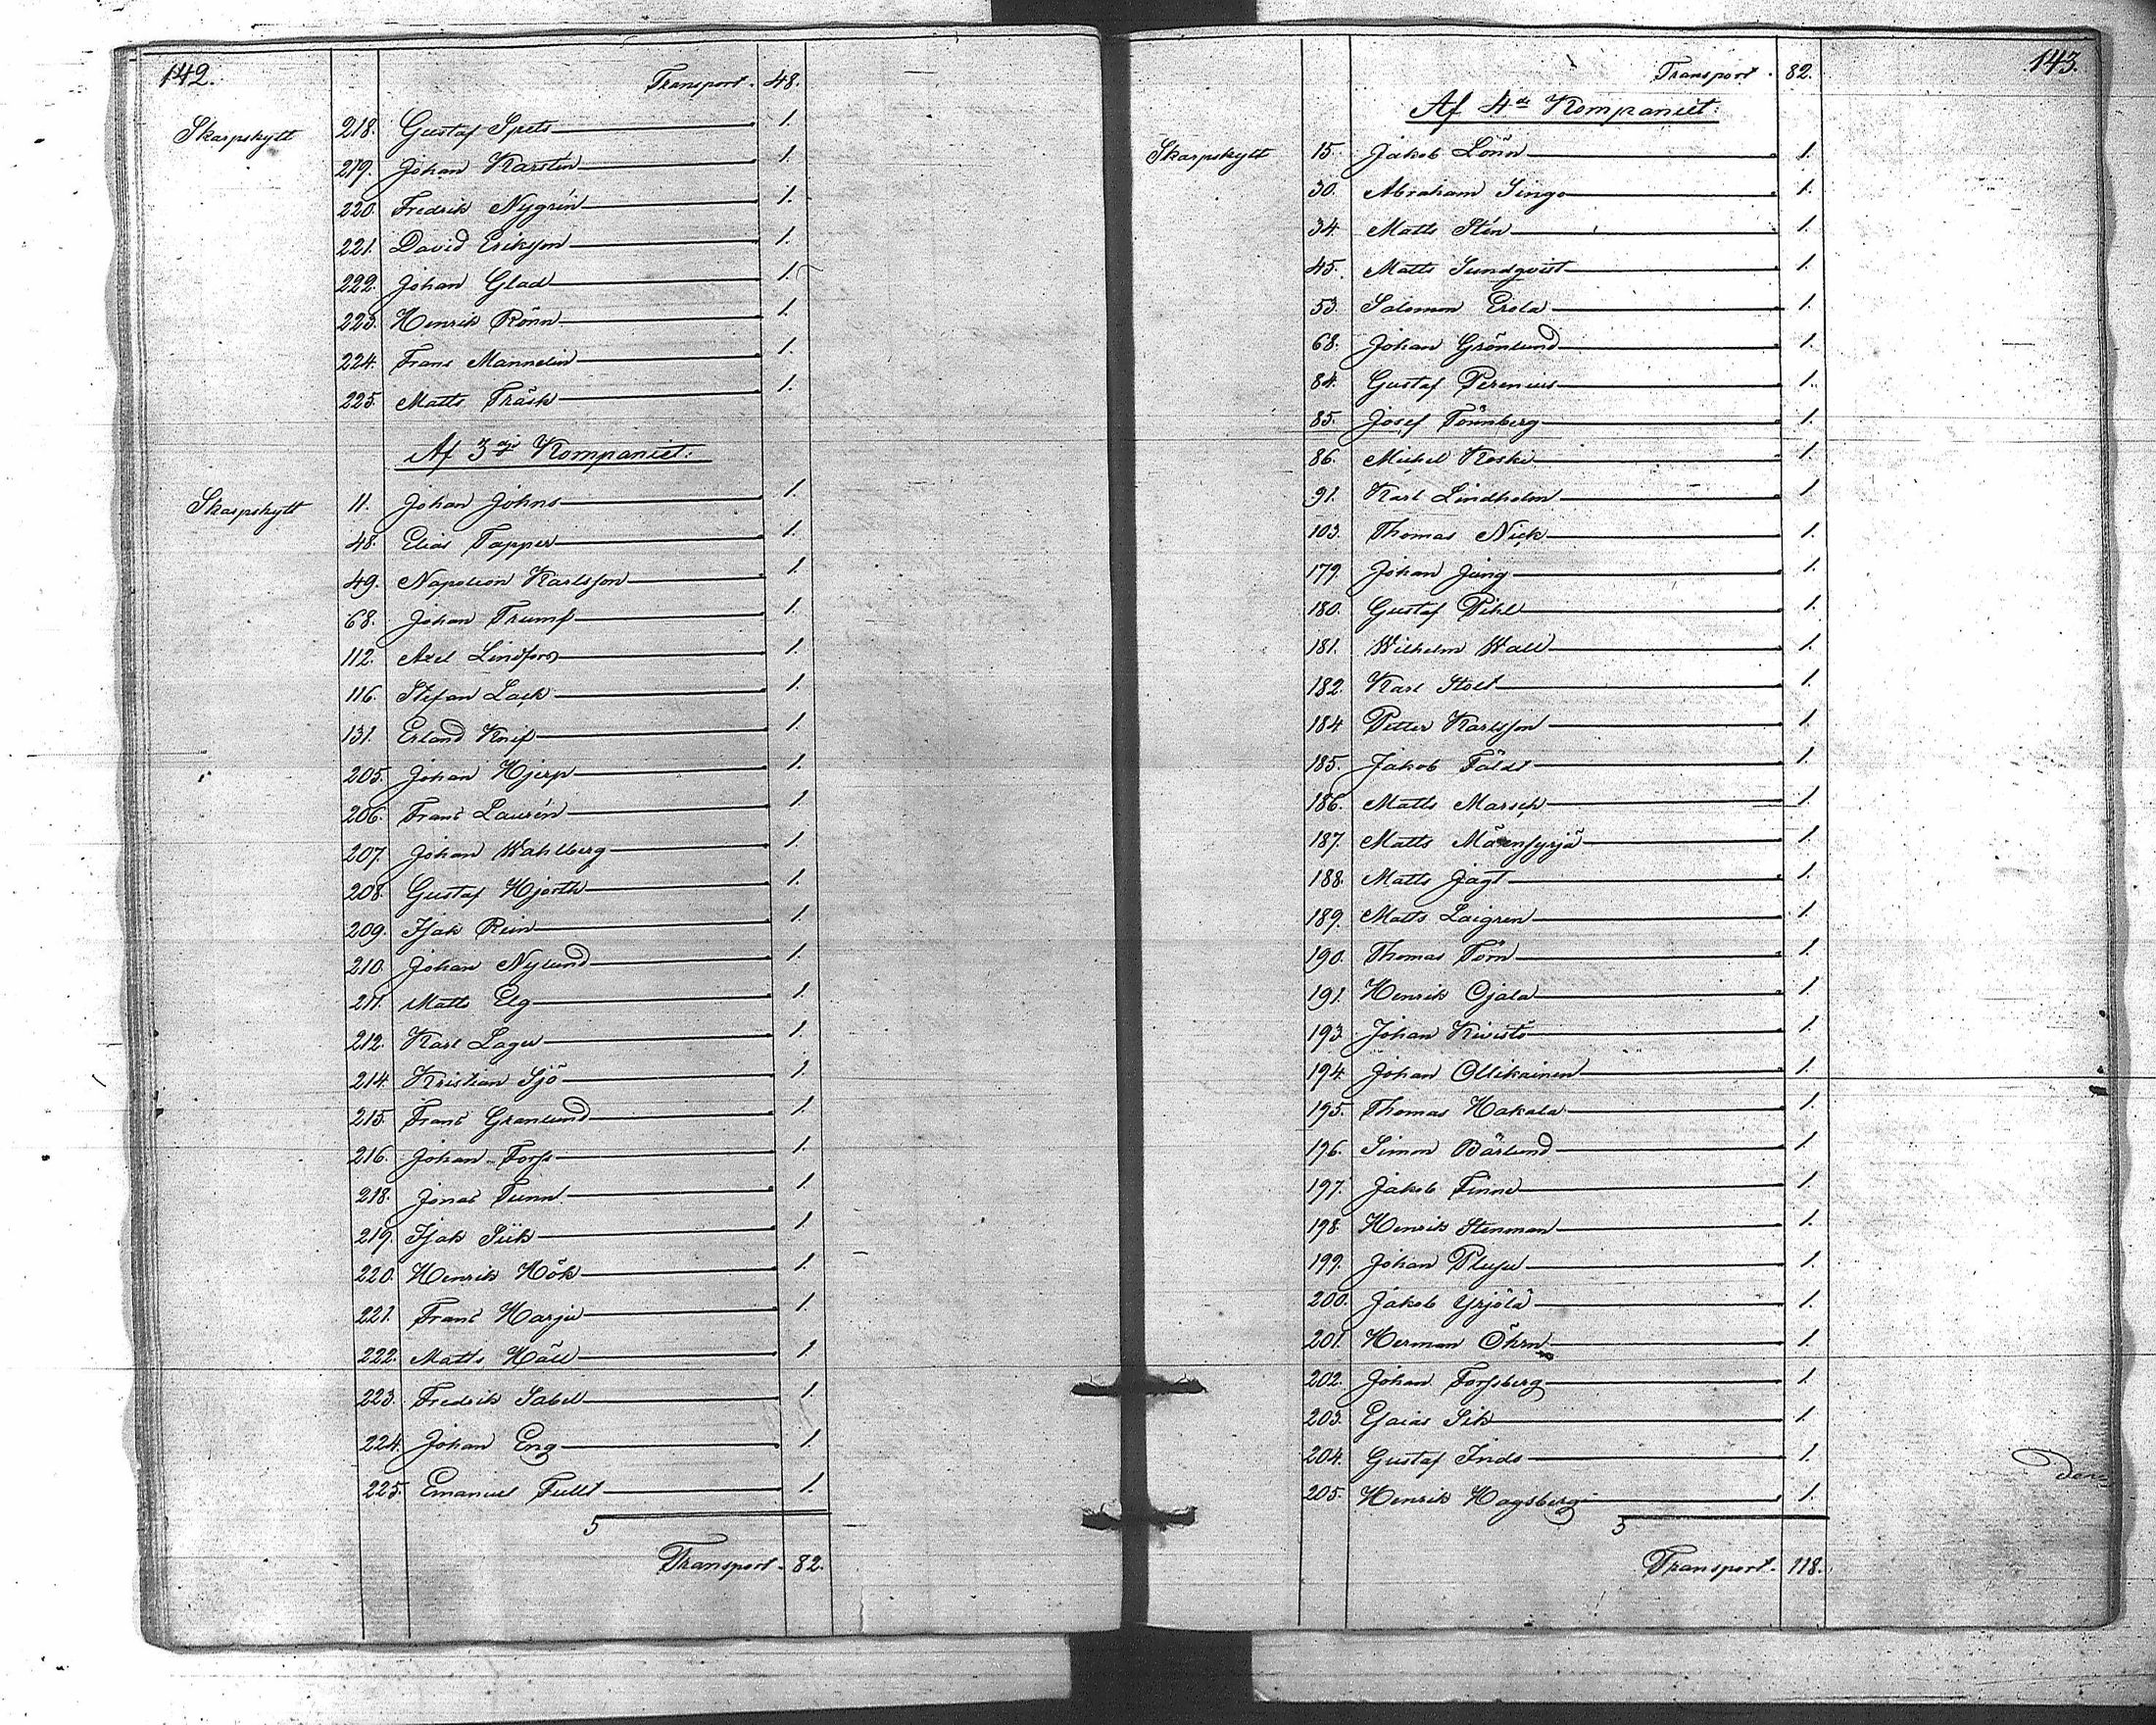 142.
Transport. 48.
Skarpskytt 218. Gustaf Spets 1.
219. Johan Karstén 1.
220. Fredrik Nygrén 1.
221. David Eriksson 1.
222. Johan Glad 1.
223. Henrik Rönn 1.
224. Frans Mannelin 1.
225. Matts Träsk 1.
Af 3dje Kompaniet:
Skarpskytt 11. Johan Johns 1.
48. Elias Tapper 1.
49. Napoleon Karlsson 1.
68. Johan Trumf 1.
112. Axel Lindfors 1.
116. Stefan Lack 1.
131. Erland Knif 1.
205. Johan Hjerp 1.
206. Frans Laurén 1.
207. Johan Wahlberg 1.
208. Gustaf Hjorth 1.
209. Isak Rein 1.
210. Johan Nylund 1.
211. Matts Elg 1.
212. Karl Lager 1.
214. Kristian Sjö 1.
215. Frans Granlund 1.
216. Johan Forss 1.
218. Jonas Tunn 1.
219. Isak Siik 1.
220. Henrik Hök 1.
221. Frans Harju 1.
222. Matts Häll 1.
223. Fredrik Sabel 1.
224. Johan Eng 1.
225. Emanuel Fullt 1.
5
Transport. 82.
143.
Transport. 82.
Af 4de Kompaniet:
Skarpskytt 15. Jakob Lönn 1.
30. Abraham Singo 1.
34. Matts Stén 1.
45. Matts Sundqvist 1.
53. Salomon Erola 1.
68. Johan Grönlund 1.
84. Gustaf Perenius 1.
85. Josef Törnberg 1.
86. Mickel Koski 1.
91. Karl Lindholm 1.
103. Thomas Nick 1.
179. Johan Jung 1.
180. Gustaf Pihl 1.
181. Wilhelm Wall 1.
182. Karl Stolt 1.
184 Petter Karlsson 1.
185. Jakob Fäldt 1.
186. Matts Marsch 1.
187. Matts Mäensyrjä 1.
188. Matts Jagt 1.
189. Matts Laigren 1.
190. Thomas Törn 1.
191. Henrik Ojala 1.
193. Johan Kivistö 1.
194. Johan Ollikainen 1.
195. Thomas Hakala 1.
196. Simon Bärlund 1.
197. Jakob Finne 1.
198. Henrik Stenman 1.
199. Johan 1.
200. Jakob Yrjölä 1.
201. Herman Öhrn 1.
202. Johan Forssberg 1.
203. Esaias Sik 1.
204. Gustaf Frids 1.
205. Henrik Hagsberg 1.
5
Transport. 118.